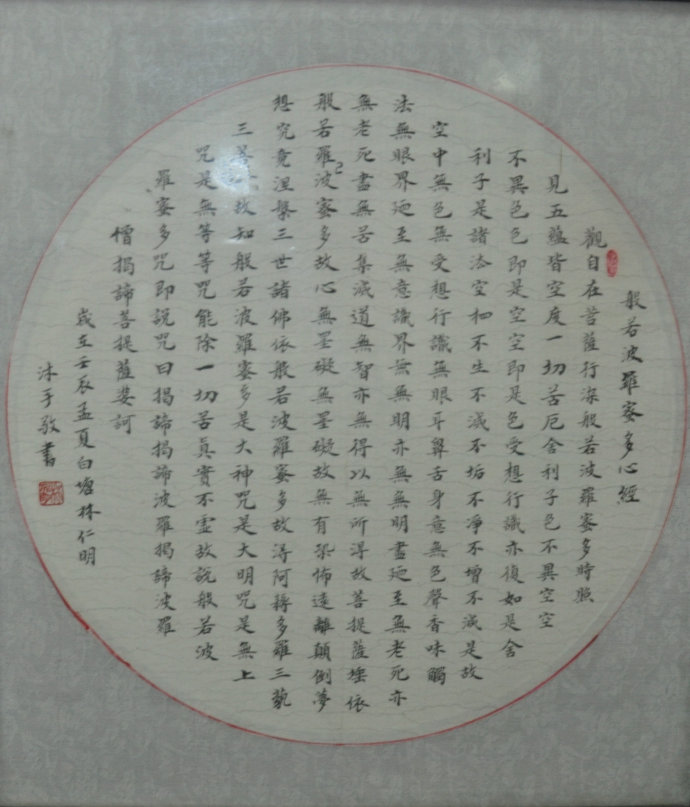 般若波羅蜜多心經
觀自在菩薩行深般若波羅蜜多時照
見五蘊皆空度一切苦厄舍利子色不異空空
不異色色即是空空即是色受想行識亦復如是舍
利子是諸法空相不生不滅不垢不淨不增不減是故
空中無色無受想行識無眼耳鼻舌身意無色聲香味觸
法無眼界廼至無意識界無無明亦無無明盡廼至無老死亦
無老死盡無苦集滅道無智亦無得以無所得故菩提薩埵依
般若羅波蜜多故心無罣礙無罣礙故無有恐怖遠離顛倒夢
想究竟涅槃三世諸佛依般若波羅蜜多故得阿耨多羅三藐
三菩故知般若波羅蜜多是大神咒是大明咒是無上
咒是無等等咒能除一切苦真實不虛故說般若波
羅蜜多咒即說咒曰揭諦揭諦波羅揭諦波羅
僧揭諦菩提薩婆訶
歲在壬辰孟夏白塘林仁明
沐手敬書